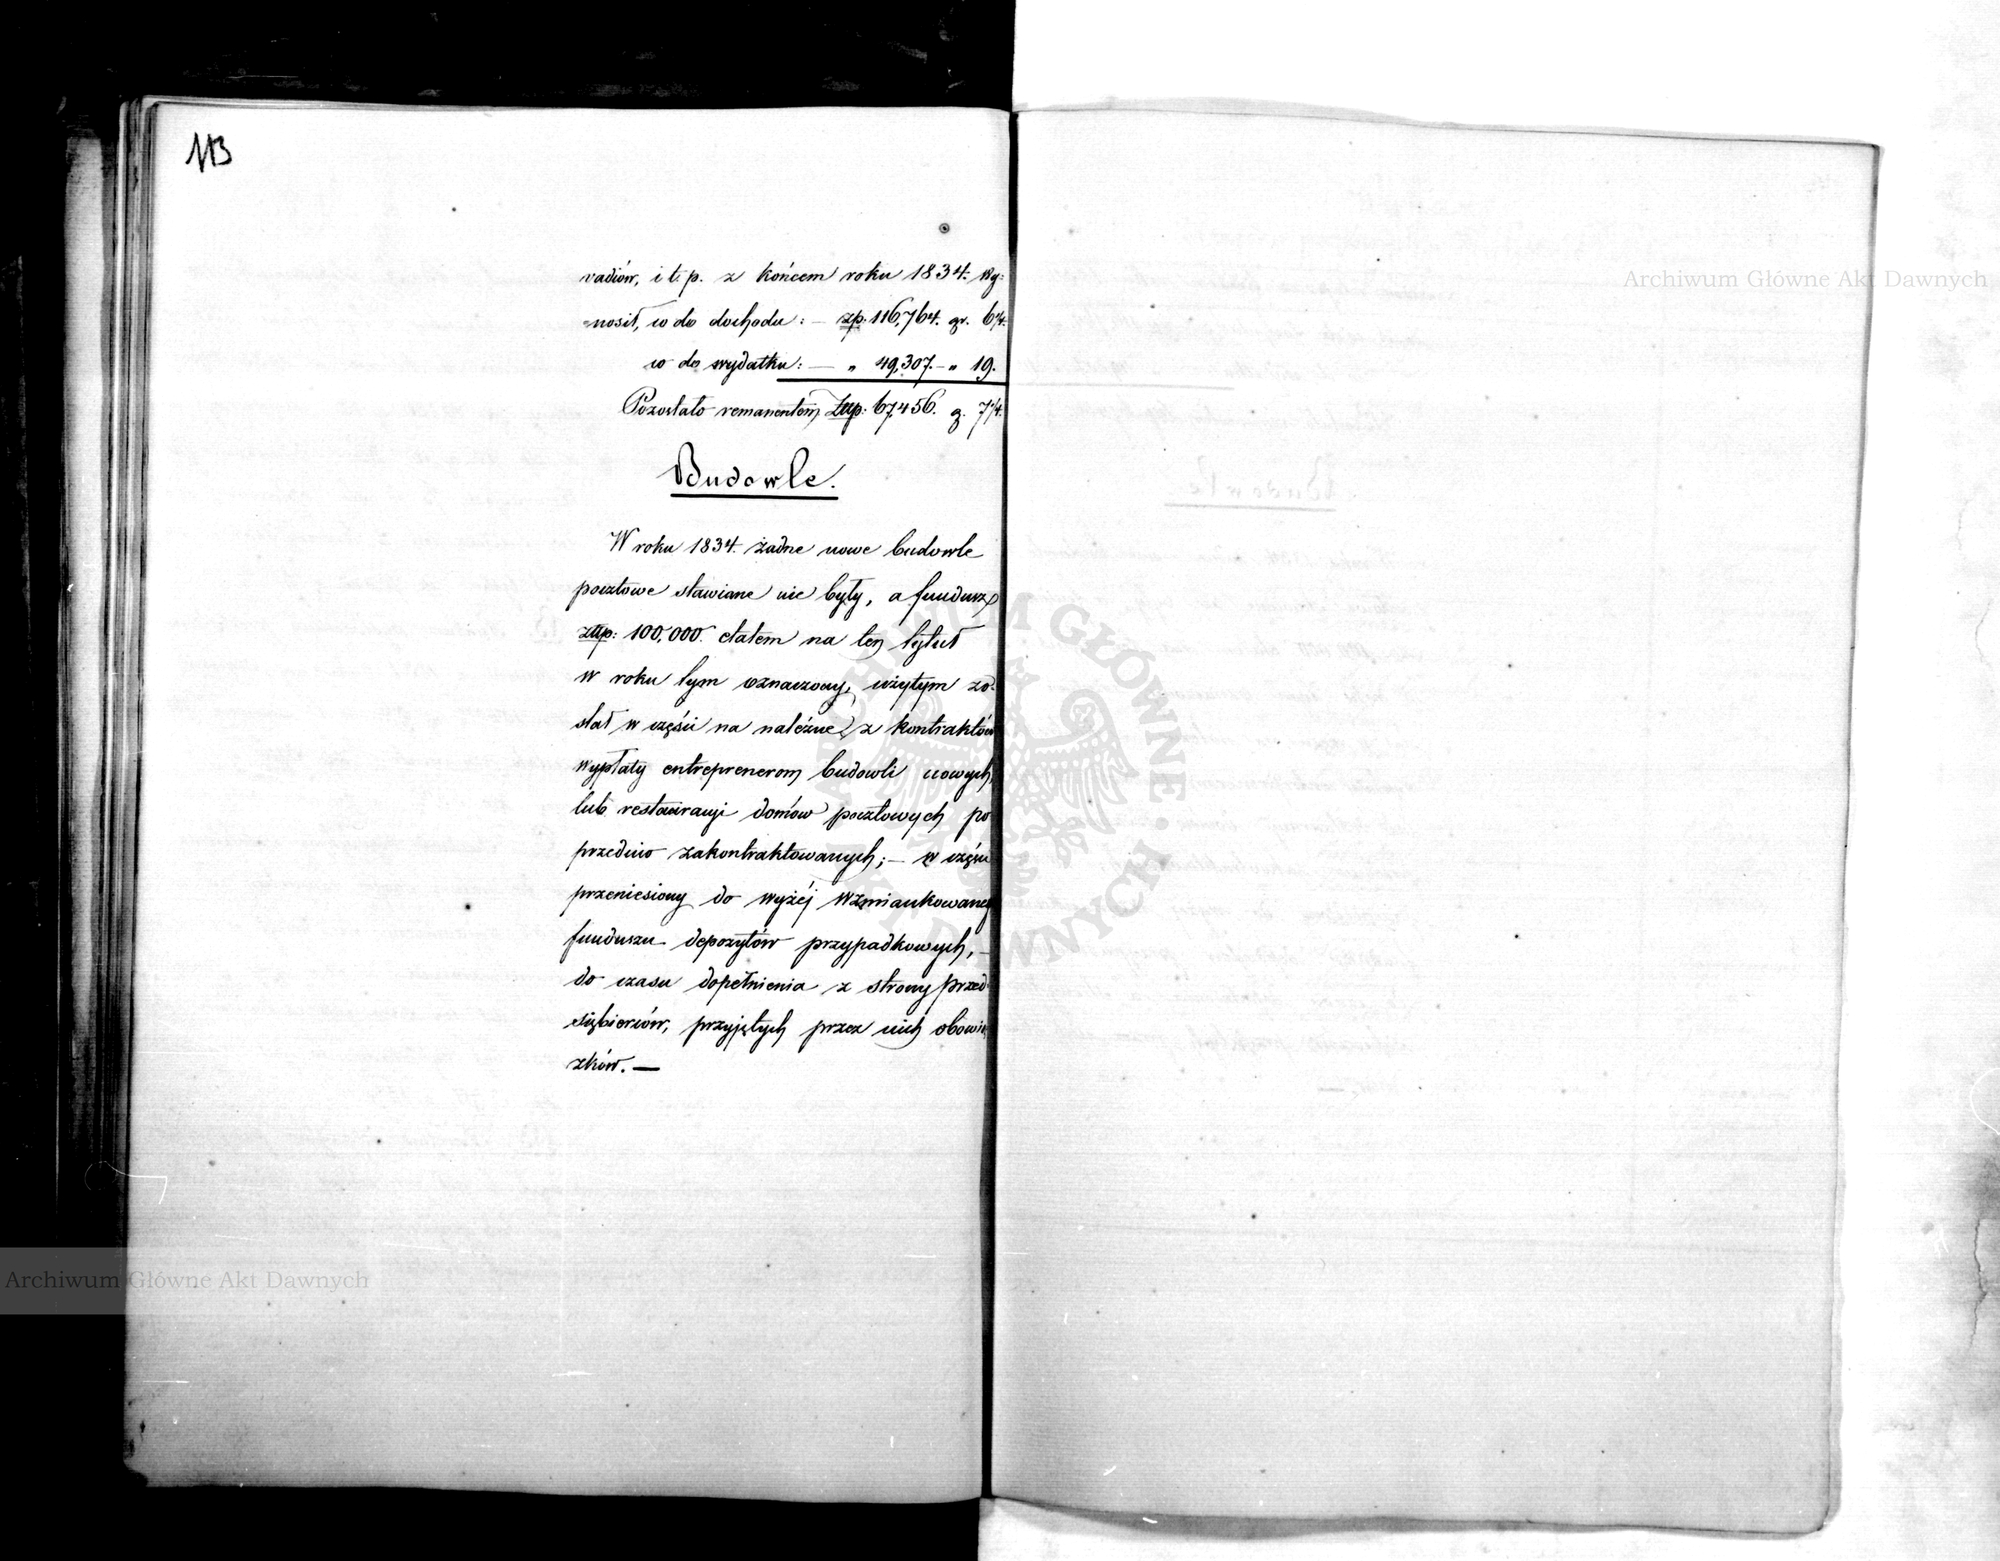 113
vadiów, i t. p. z końcem roku 1834. wy=
=nosił, co do dochodu: — zp. 116,764. gr.
co do wydatku: — „ 49,307. — „ 19.
Pozostało remanentem Złp: 67,456. g.
Budowle.
W roku 1834. żadne nowe budowle
pocztowe stawiane nie były, a fundusz
złp: 100,000. etatem na ten tytuł
w roku tym oznaczony, użytym zo=
stał w części na należne z kontraktów
wypłaty entreprenerom budowli nowych,
lub restauracyi domów pocztowych po
przednio zakontraktowanych; — w części
przeniesiony do wyżéj wzmiankowanego
funduszu depozytów przypadkowych, —
do czasu dopełnienia z strony przed
siębierców, przyjętych przez nich obowią
zków. —
Archiwum Główne Akt Dawnych
Archiwum Główne Akt Dawnych